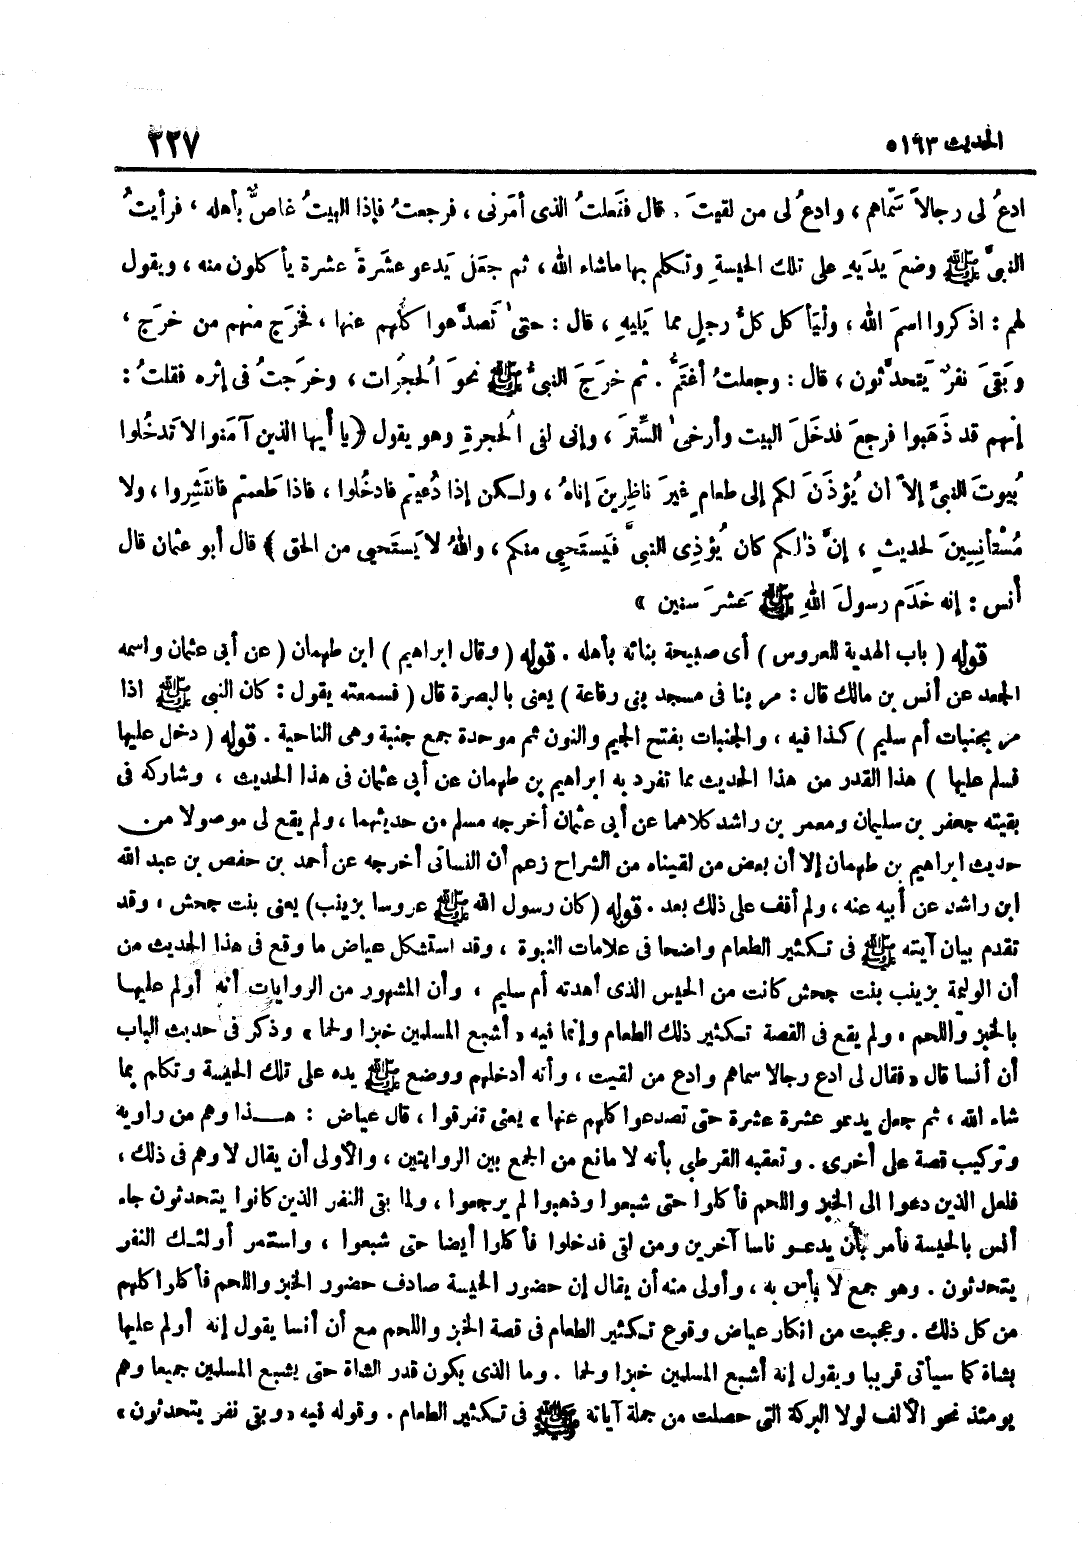 الحديث ٥١٦٣ ٢٢٧
ادعُ لى رجالاً سَمّاهم ، وادعُ لى من لقيتَ . قال ففعلتُ الذى أمَرنى ، فرجعتُ فإذا البيتُ غاصٌّ بأهله ، فرأيتُ
النبىَّ ﷺ وضعَ يدَيهِ على تلك الحيسةِ وتكلم بها ماشاء الله ، ثم جعَل يَدعو عشَرةً عشرة يأكلون منه ، ويقول
لهم : اذكروا اسمَ الله ، ولْيَأكل كلُّ رجلٍ مما يَليهِ ، قال : حتىٰ تَصدَّعوا كلُّهم عنها ، فخرَج منهم من خرَج ،
وبَقىَ نفرٌ يَتحدَّثون ، قال : وجعلتُ أغتَمُّ . ثم خرَجَ النبىُّ ﷺ نحوَ الحجُرات ، وخرَجتُ فى إثره فقلتُ :
إنهم قد ذَهَبوا فرجعَ فدخَلَ البيت وأرخىٰ السِّترَ ، وإنى لفى الحجرةِ وهو يقول ﴿يا أيها الذين آمَنوا لا تَدخُلوا
بُيوتَ النبىِّ إلاّ أن يُؤذَنَ لكم إلى طعامٍ غيرَ ناظِرِينَ إناهُ ، ولكن إذا دُعيتم فادخُلوا ، فاذا طَعمتم فانتَشِروا ، ولا
مُسْتأنِسِينَ لحديثٍ ، إنَّ ذٰلكم كان يُؤذِى النبىَّ فيَستَحيِى منكم ، واللهُ لا يَستَحيى من الحق ﴾ قال أبو عثمان قال
أنس : إنه خَدَم رسولَ اللهِ ﷺ عَشرَ سنين »
قوله ( باب الهدية للعروس ) أى صبيحة بنائه بأهله . قوله ( وقال ابراهيم ) ابن طهمان ( عن أبى عثمان واسمه
الجعد عن أنس بن مالك قال : مر بنا فى مسجد بنى رفاعة ) يعنى بالبصرة قال ( فسمعته يقول : كان النبى ﷺ اذا
مر بجنبات أم سليم ) كذا فيه ، والجنبات بفتح الجيم والنون ثم موحدة جمع جنبة وهى الناحية . قوله ( دخل عليها
فسلم عليها ) هذا القدر من هذا الحديث مما تفرد به ابراهيم بن طهمان عن أبى عثمان فى هذا الحديث ، وشاركه فى
بقيته جعفر بن سليمان ومعمر بن راشد كلاهما عن أبى عثمان أخرجه مسلم من حديثهما ، ولم يقع لى موصولا من
حديث ابراهيم بن طهمان إلا أن بعض من لقيناه من الشراح زعم أن النسائى أخرجه عن أحمد بن حفص بن عبد الله
ابن راشد عن أبيه عنه ، ولم أقف على ذلك بعد . قوله (كان رسول الله ﷺ عروسا بزينب) يعنى بنت جحش ، وقد
تقدم بيان آيته ﷺ فى تكثير الطعام واضحا فى علامات النبوة ، وقد استشكل عياض ما وقع فى هذا الحديث من
أن الوليمة بزينب بنت جحش كانت من الحيس الذى أهدته أم سليم ، وأن المشهور من الروايات أنه أولم عليها
بالخبز واللحم ، ولم يقع فى القصة تكثير ذلك الطعام وإنما فيه « أشبع المسلمين خبزا ولحما » وذكر فى حديث الباب
أن أنسا قال « فقال لى ادع رجالا سماهم وادع من لقيت ، وأنه أدخلهم ووضع ﷺ يده على تلك الحيسة وتكلم بما
شاء الله ، ثم جعل يدعو عشرة عشرة حتى تصدعوا كلهم عنها » يعنى تفرقوا ، قال عياض : هذا وهم من راويه
وتركيب قصة على أخرى . وتعقبه القرطبى بأنه لا مانع من الجمع بين الروايتين ، والأولى أن يقال لا وهم فى ذلك ،
فلعل الذين دعوا الى الخبز واللحم فأكلوا حتى شبعوا وذهبوا لم يرجعوا ، ولما بقى النفر الذين كانوا يتحدثون جاء
أنس بالحيسة فأمر بأن يدعو ناسا آخرين ومن لقى فدخلوا فأكلوا أيضا حتى شبعوا ، واستمر أولئك النفر
يتحدثون . وهو جمع لا بأس به ، وأولى منه أن يقال إن حضور الحيسة صادف حضور الخبز واللحم فأكلوا كلهم
من كل ذلك . وعجبت من انكار عياض وقوع تكثير الطعام فى قصة الخبز واللحم مع أن أنسا يقول إنه أولم عليها
بشاة كما سيأتى قريبا ويقول إنه أشبع المسلمين خبزا ولحما . وما الذى يكون قدر الشاة حتى يشبع المسلمين جميعا وهم
يومئذ نحو الألف لولا البركة التى حصلت من جملة آياته ﷺ فى تكثير الطعام . وقوله فيه « وبقى نفر يتحدثون »